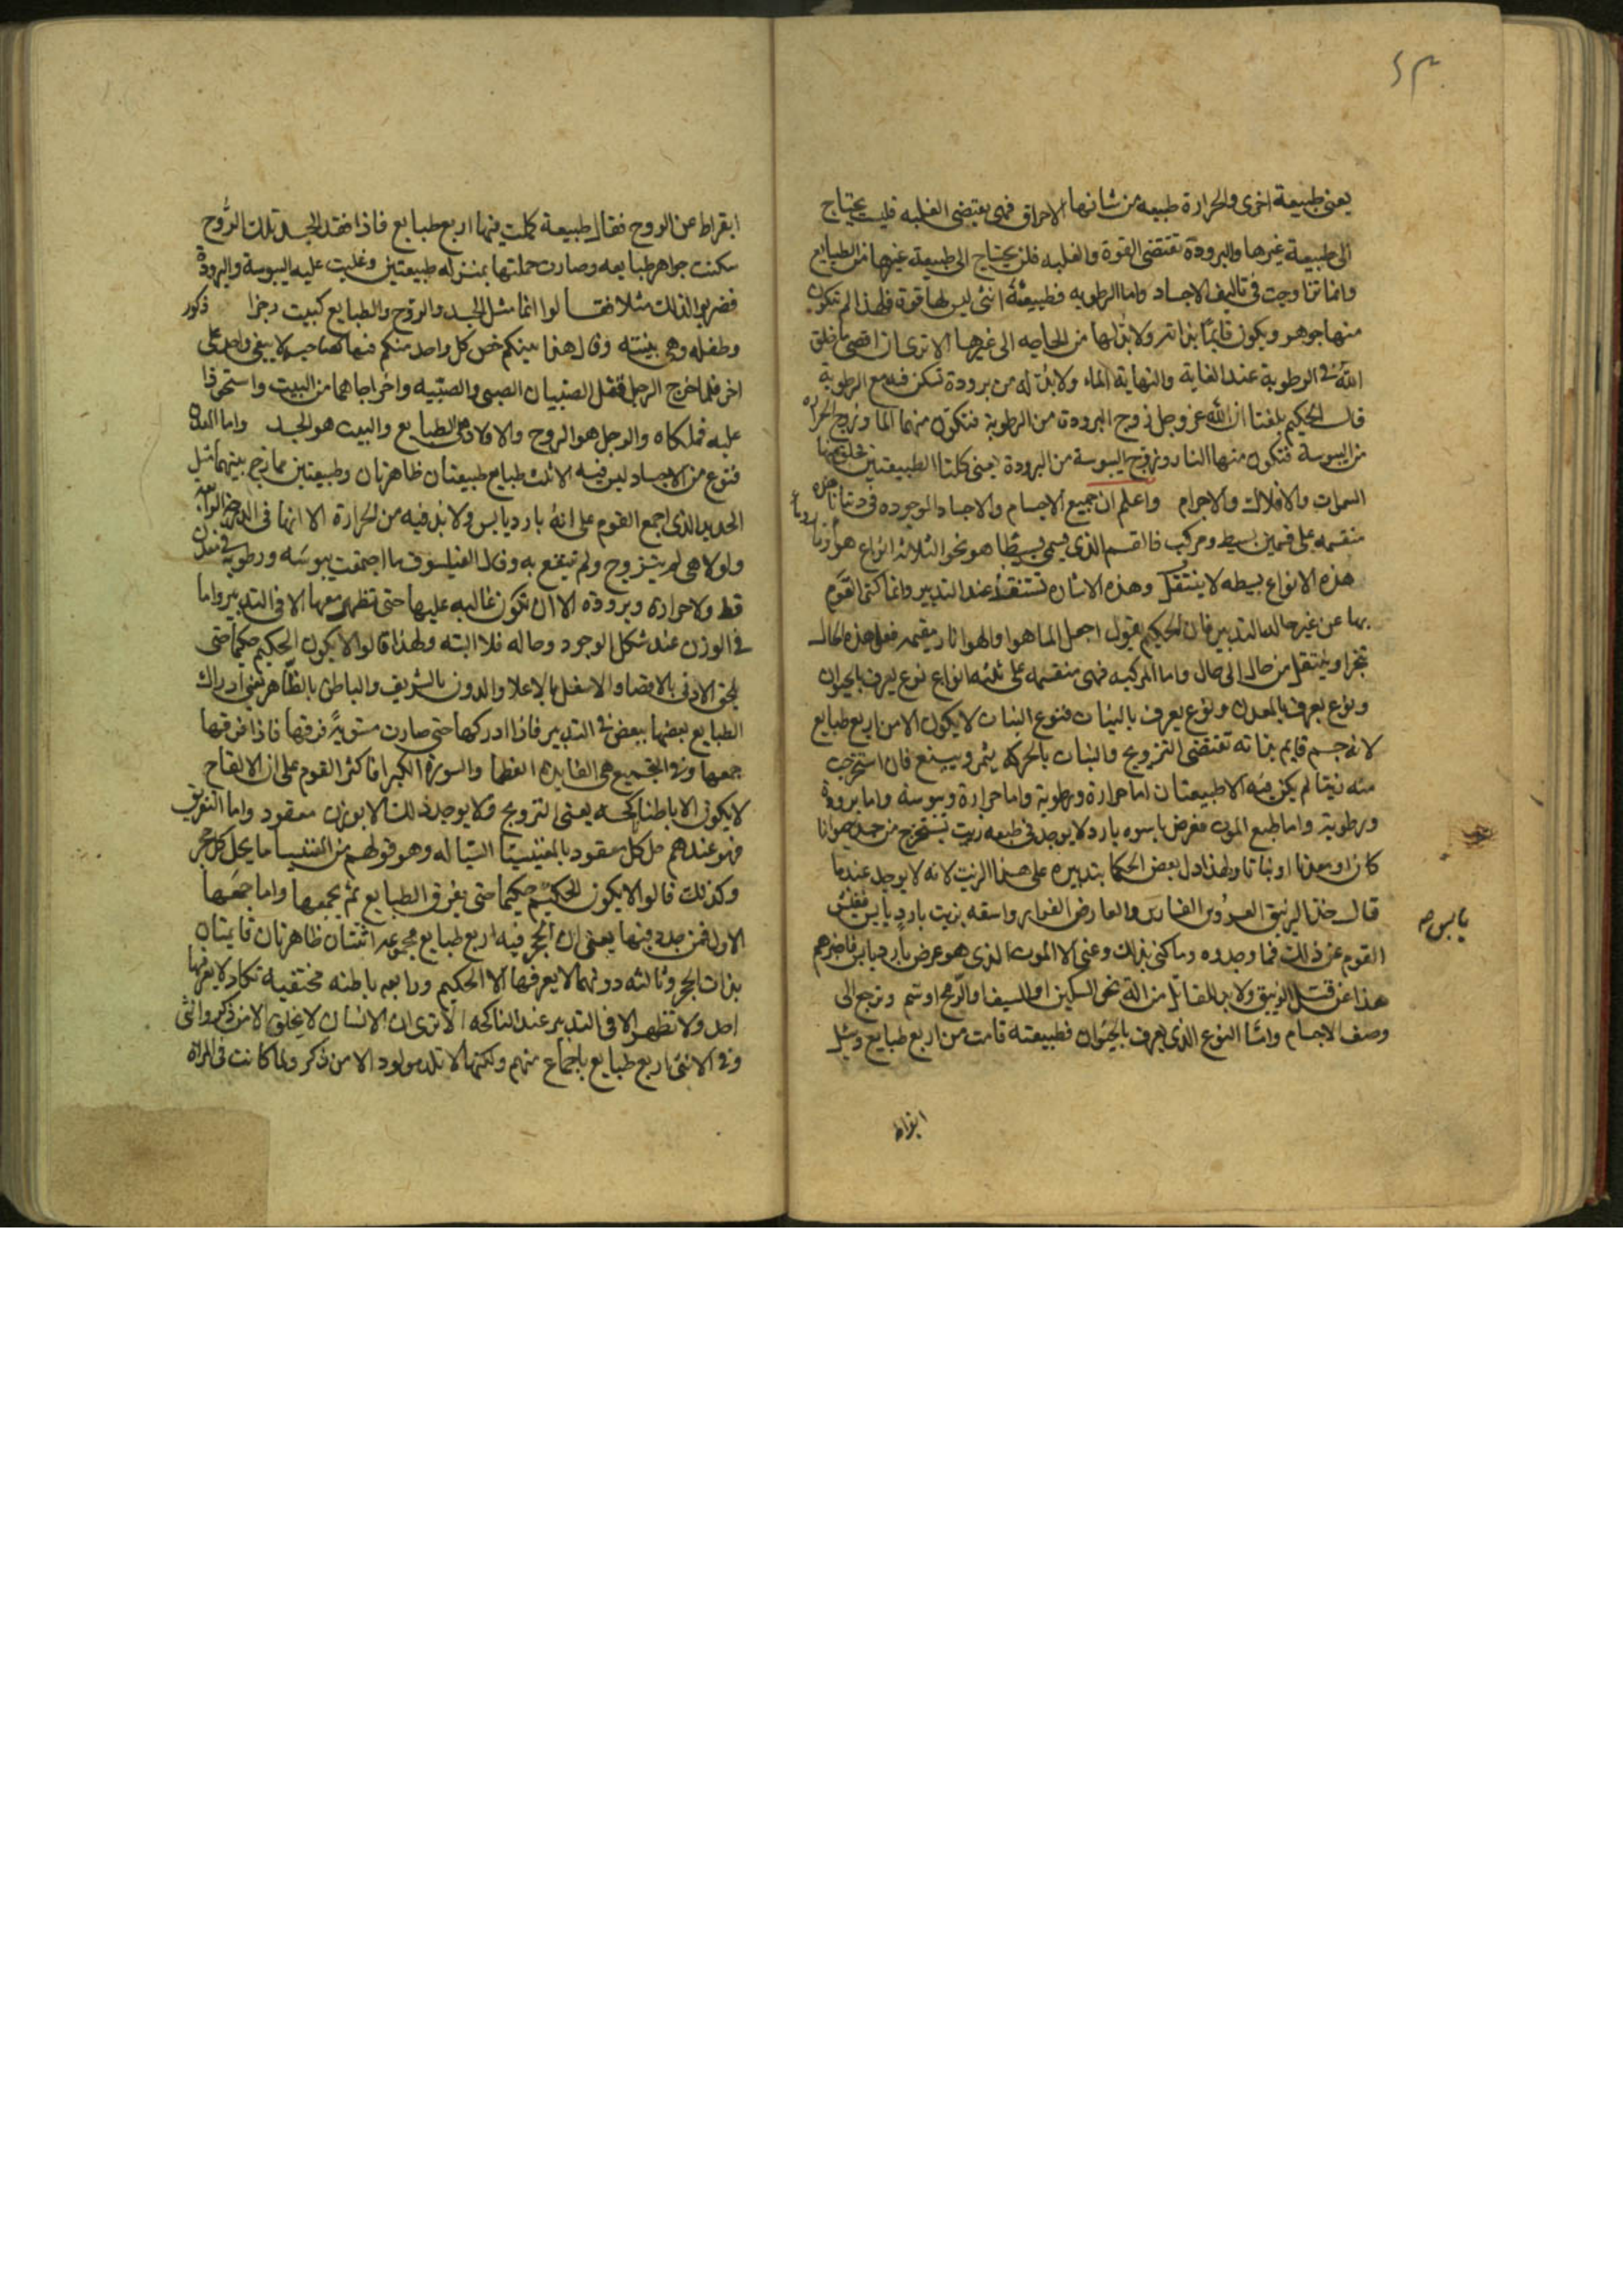 ٤٣
يعنى طبيعة اخرى والحرارة طبيعه من شانها الاحراق فهى يقتضى الغلبه فليست يحتاج
الى طبيعة غيرها والبرودة تقتضى القوة والغلبه فلن يحتاج الى طبيعة غيرها من الطبايع
وانما تزاوجت فى تاليف الاجساد واما الرطوبه فطبيعة انثى ليس لها قوة فلهذا لم تتكون
منها جوهر ويكون قايمًا بذاته ولا بد لها من الحاجه الى غيرها الا ترى ان اقصى ما خلق
الله فى الرطوبة عند الغاية والنهاية الماء ولا بد له من برودة تسكن فيه مع الرطوبة
قال الحكيم بلغنا ان الله عز وجل زوج البرودة من الرطوبة فتكون منهما الما وزوج الحراره
من اليبوسة فتكون منها النار وزوج اليبوسة من البرودة يعنى كلتا الطبيعتين فخلق منها
السموات والافلاك والاجرام واعلم ان جميع الاجسام والاجساد الموجوده فى دنيانا هذه
منقسمه على قسمين بسيط ومركب فالقسم الذى يسمى بسيطا هو نحو الثلاثة انواع هوا ونار وما
هذه الانواع بسيطه لا ينتقل وهذه الاشاره تستنقذ عند التدبير وانما كنى القوم
بها عن غير حالة التدبير فان الحكيم يقول اجعل الما هوا والهوا نار فعلى هذه الحال
تتجزا وينتقل من حال الى حال واما المركبه فهى منقسمه على ثلثه انواع نوع يعرف بالحيوان
ونوع يعرف بالمعدن ونوع يعرف بالنبات فنوع النبات لا يكون الا من اربع طبايع
لانه جسم قايم بذاته تقتضى التزويج والنبات بالحركه يثمر ويينع فان استخرجت
منه زيتا لم يكن فيه الا طبيعتان اما حرارة ورطوبة واما حرارة ويبوسة واما برودة
ورطوبة واما طبع الموت فعرض يابسوه بارد لا يوجد فى طبعه زيت يستخرج من جسد حيوانا
كان او معدنا او نباتا ولهذا دل بعض الحكما بتدبيره على هذا الزيت لانه لا يوجد عندما
قال خذ الزيبق العدو الفار والعارض الفرار واسقه بزيت بارد يابس ففتش
يابس صح
القوم عن ذلك فما وجدوه وما كنى بذلك وعنى الا الموت الذى هو عرض بارد يابس فاخبرهم
هذا عن قتل الزيبق ولا بد للقاتل من الة نحو السكين او السيف او الرمح او سم ونرجع الى
وصف الاجسام وامّا النوع الذى يعرف بالحيوان فطبيعته قامت من اربع طبايع وسئل
ابقراط
ابقراط عن الروح فقال طبيعة كملت فيها اربع طبايع فاذا فقد الجسد تلك الروح
سكنت جواهر طبايعه وصارت جملتها بمنزله طبيعتين وغلبت عليه اليبوسة والبرودة
فضربوا لذلك مثلا فقالوا انما مثل الجسد والروح والطبايع كبيت رجزا ذكور
وطفله وهى بينته وقال هذا بينكم خص كل واحد منكم فيها كصاحبه لا يبغى واحد على
اخر فلما خرج الرجل فقتل الصبيان الصبى والصبيه واخراجاهما من البيت واستحوذا
عليه فملكاه والرجل هو الروح والاولاد هى الطبايع والبيت هو الجسد واما المعدن
فنوع من الاجساد ليس فيه الا ثلث طبايع طبيعتان ظاهرتان وطبيعتين ممازج بينهما مثل
الحديد الذى اجمع القوم على انهُ بارد يابس ولا بد فيه من الحرارة الا انها فى
ولولا هى لم يتزوج ولم تنتفع به وقال الفيلسوف ما اجتمعت يبوسه ورطوبة فى معدن
قط ولا حرارة وبرودة الا ان تكون غالبه عليها حتى تظهر معها الا فى التدبير واما
فى الوزن عند شكل الوجود وحاله فلا البته ولهذا قالوا لا يكون الحكيم حكيما حتى
يلحق الادنى بالاقصا والاسفل بالاعلا والدون بالشريف والباطن بالظاهر يعنى ادراك
الطبايع بعضها ببعض فى التدبير فاذا ادركها حتى صارت مستويةً فرقها فاذا فرقها
جمعها وفى الجميع هى الفايده العظما والسورة الكبرا فاكثر القوم على ان الالقاح
لا يكون الا باطنا كحه يعنى التزويج ولا يوجد ذلك الا بوزن معقود واما التفريق
فهو عندهم حل كل معقود بالمغنيسيا السيّاله وهو قولهم من المغنيسيا ما يحل كل حجر
وكذلك قالوا لا يكون الحكيم حكيما حتى يفرق الطبايع ثم يجمعها واما جمعها
الاول فمن جلده فيها يعنى ان الحجر فيه اربع طبايع مجموعه اثنتان ظاهرتان قايمتان
بذات الحجر وثالثه دونهما لا يعرفها الا الحكيم ورابعه باطنه مختفيه تكاد لا يعرفها
احد ولا تظهر الا فى التدبير عند الناكحه الا ترى ان الانسان لا يخلق الا من ذكر وانثى
وفى الانثى اربع طبايع باجماع منهم ولكنها لا تلد مولود الا من ذكر ولما كانت فى المراه